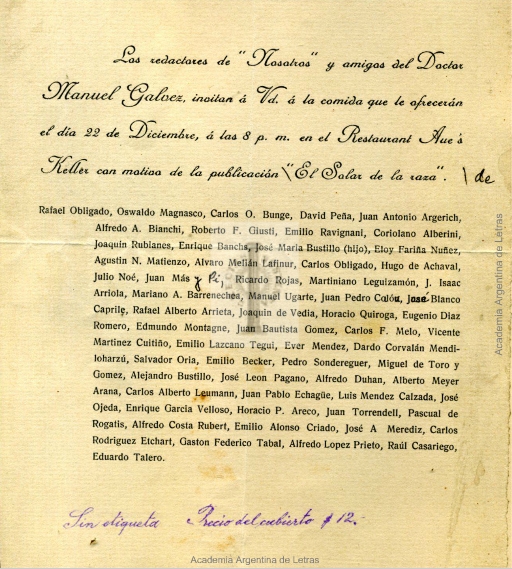 Los redactores de "Nosotros" y amigos del Doctor
Manuel Galvez, invitan á Vd. á la comida que le ofrecerán
el día 22 de Diciembre, á las 8 p. m. en el Restaurant Aue's
Keller con motivo de la publicación \ "El Solar de la raza". \ de
Rafael Obligado, Oswaldo Magnasco, Carlos O. Bunge, David Peña, Juan Antonio Argerich,
Alfredo A. Bianchi, Roberto F. Giusti, Emilio Ravignani, Coriolano Alberini,
Joaquin Rubianes, Enrique Banchs, José Maria Bustillo (hijo), Eloy Fariña Nuñez,
Agustin N. Matienzo, Alvaro Melián Lafinur, Carlos Obligado, Hugo de Achaval,
Julio Noé, Juan Más y Pí, Ricardo Rojas, Martiniano Leguizamón, J. Isaac
Arriola, Mariano A. Barrenechea, Manuel Ugarte, Juan Pedro Calou, José Blanco
Caprile, Rafael Alberto Arrieta, Joaquin de Vedia, Horacio Quiroga, Eugenio Diaz
Romero, Edmundo Montagne, Juan Bautista Gomez, Carlos F. Melo, Vicente
Martinez Cuitiño, Emilio Lazcano Tegui, Ever Mendez, Dardo Corvalán Mendi-
loharzú, Salvador Oria, Emilio Becker, Pedro Sondereguer, Miguel de Toro y
Gomez, Alejandro Bustillo, José Leon Pagano, Alfredo Duhan, Alberto Meyer
Arana, Carlos Alberto Leumann, Juan Pablo Echagüe, Luis Mendez Calzada, José
Ojeda, Enrique Garcia Velloso, Horacio P. Areco, Juan Torrendell, Pascual de
Rogatis, Alfredo Costa Rubert, Emilio Alonso Criado, José A Merediz, Carlos
Rodriguez Etchart, Gaston Federico Tabal, Alfredo Lopez Prieto, Raúl Casariego,
Eduardo Talero.
Sin etiqueta Precio del cubierto $ 12.-
Academia Argentina de Letras
Academia Argentina de Letras